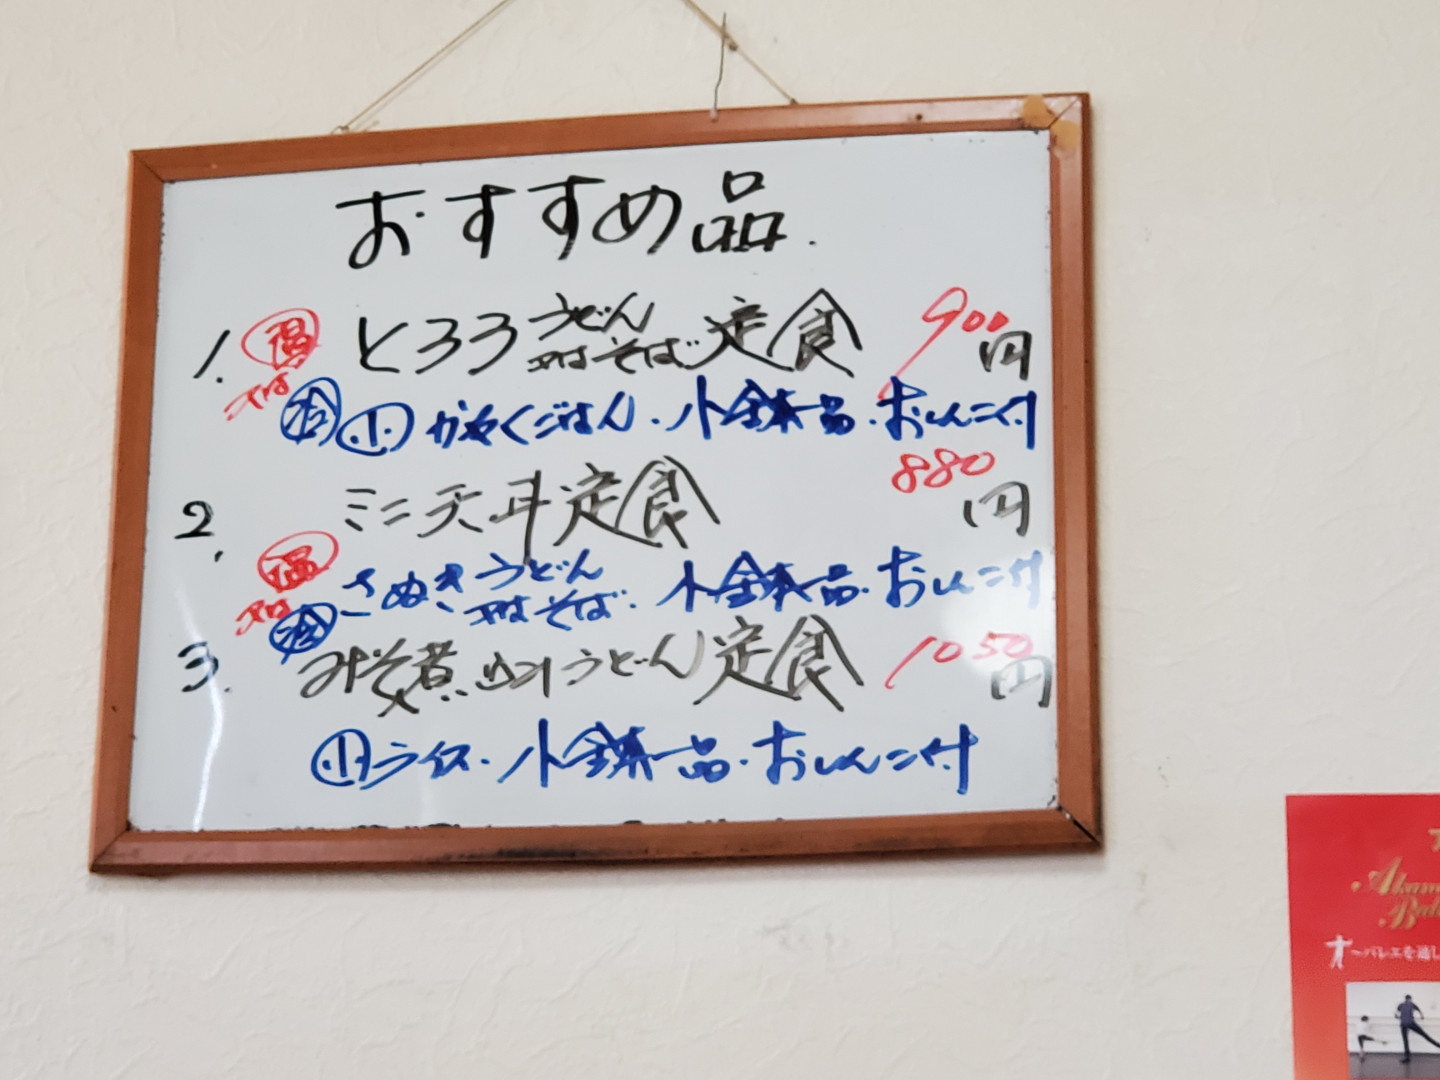 おすすめ品.
1. 温又は冷 とろろうどん又はそば定食 900円
小 かやくごはん・小鉢一品・おしんこ付
2. ミニ天丼定食 880円
温又は冷 さぬきうどん又はそば・小鉢一品・おしんこ付
3. みそ煮込みうどん定食 1050円
小 ライス・小鉢一品・おしんこ付
〜バレエを通し